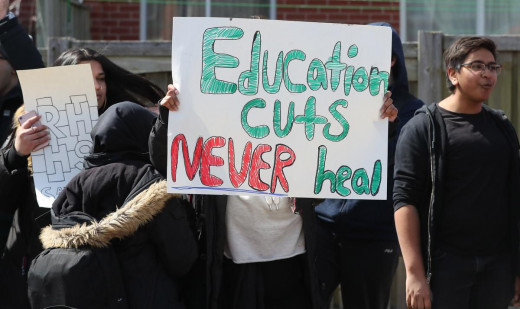 Education
CUTS
NEVER heal
RH
HS